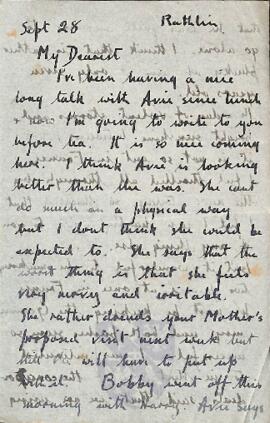 Sept 28 Rathlin
My Dearest
I've been having a nice
long talk with Avie since lunch
I'm going to write to you
before tea. It is so nice coming
here. I think Avie is looking
better than she was. She cant
do much in a physical way
but I dont think she would be
expected to. She says that the
worst thing is that she feels
very nervy and irritable.
She rather dreads your Mother's
proposed visit next week but
will have to put up
with it. Bobby went off this
morning with Harry. Avie says